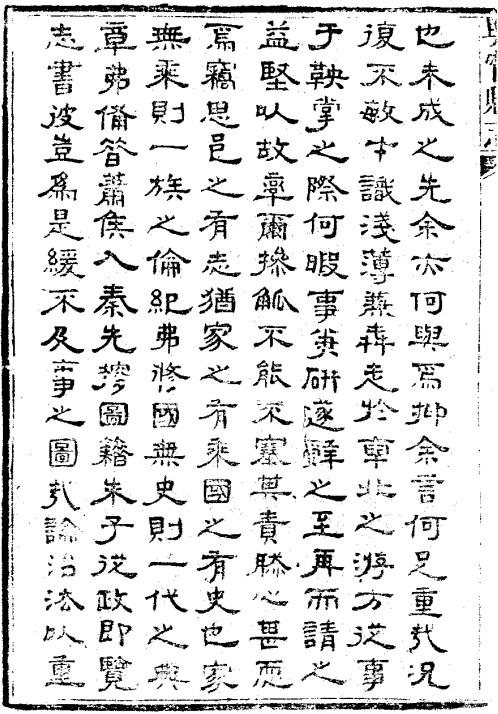 也未成之先余亦何與焉抑余言何足重哉況
復不敏才識淺薄兼犇走於車北之游方從事
于鞅掌之際何暇事筆研遂辭之至再而請之
益堅以故率爾操觚不能不塞其責心甚恧
焉竊思邑之有志猶家之有乘國之有史也家
無乘則一族之倫紀弗修國無史則一代之典
章弗備昔蕭侯入秦先圖籍朱子從政即覽
志書彼豈爲是緩不及事之圖哉論治法以重